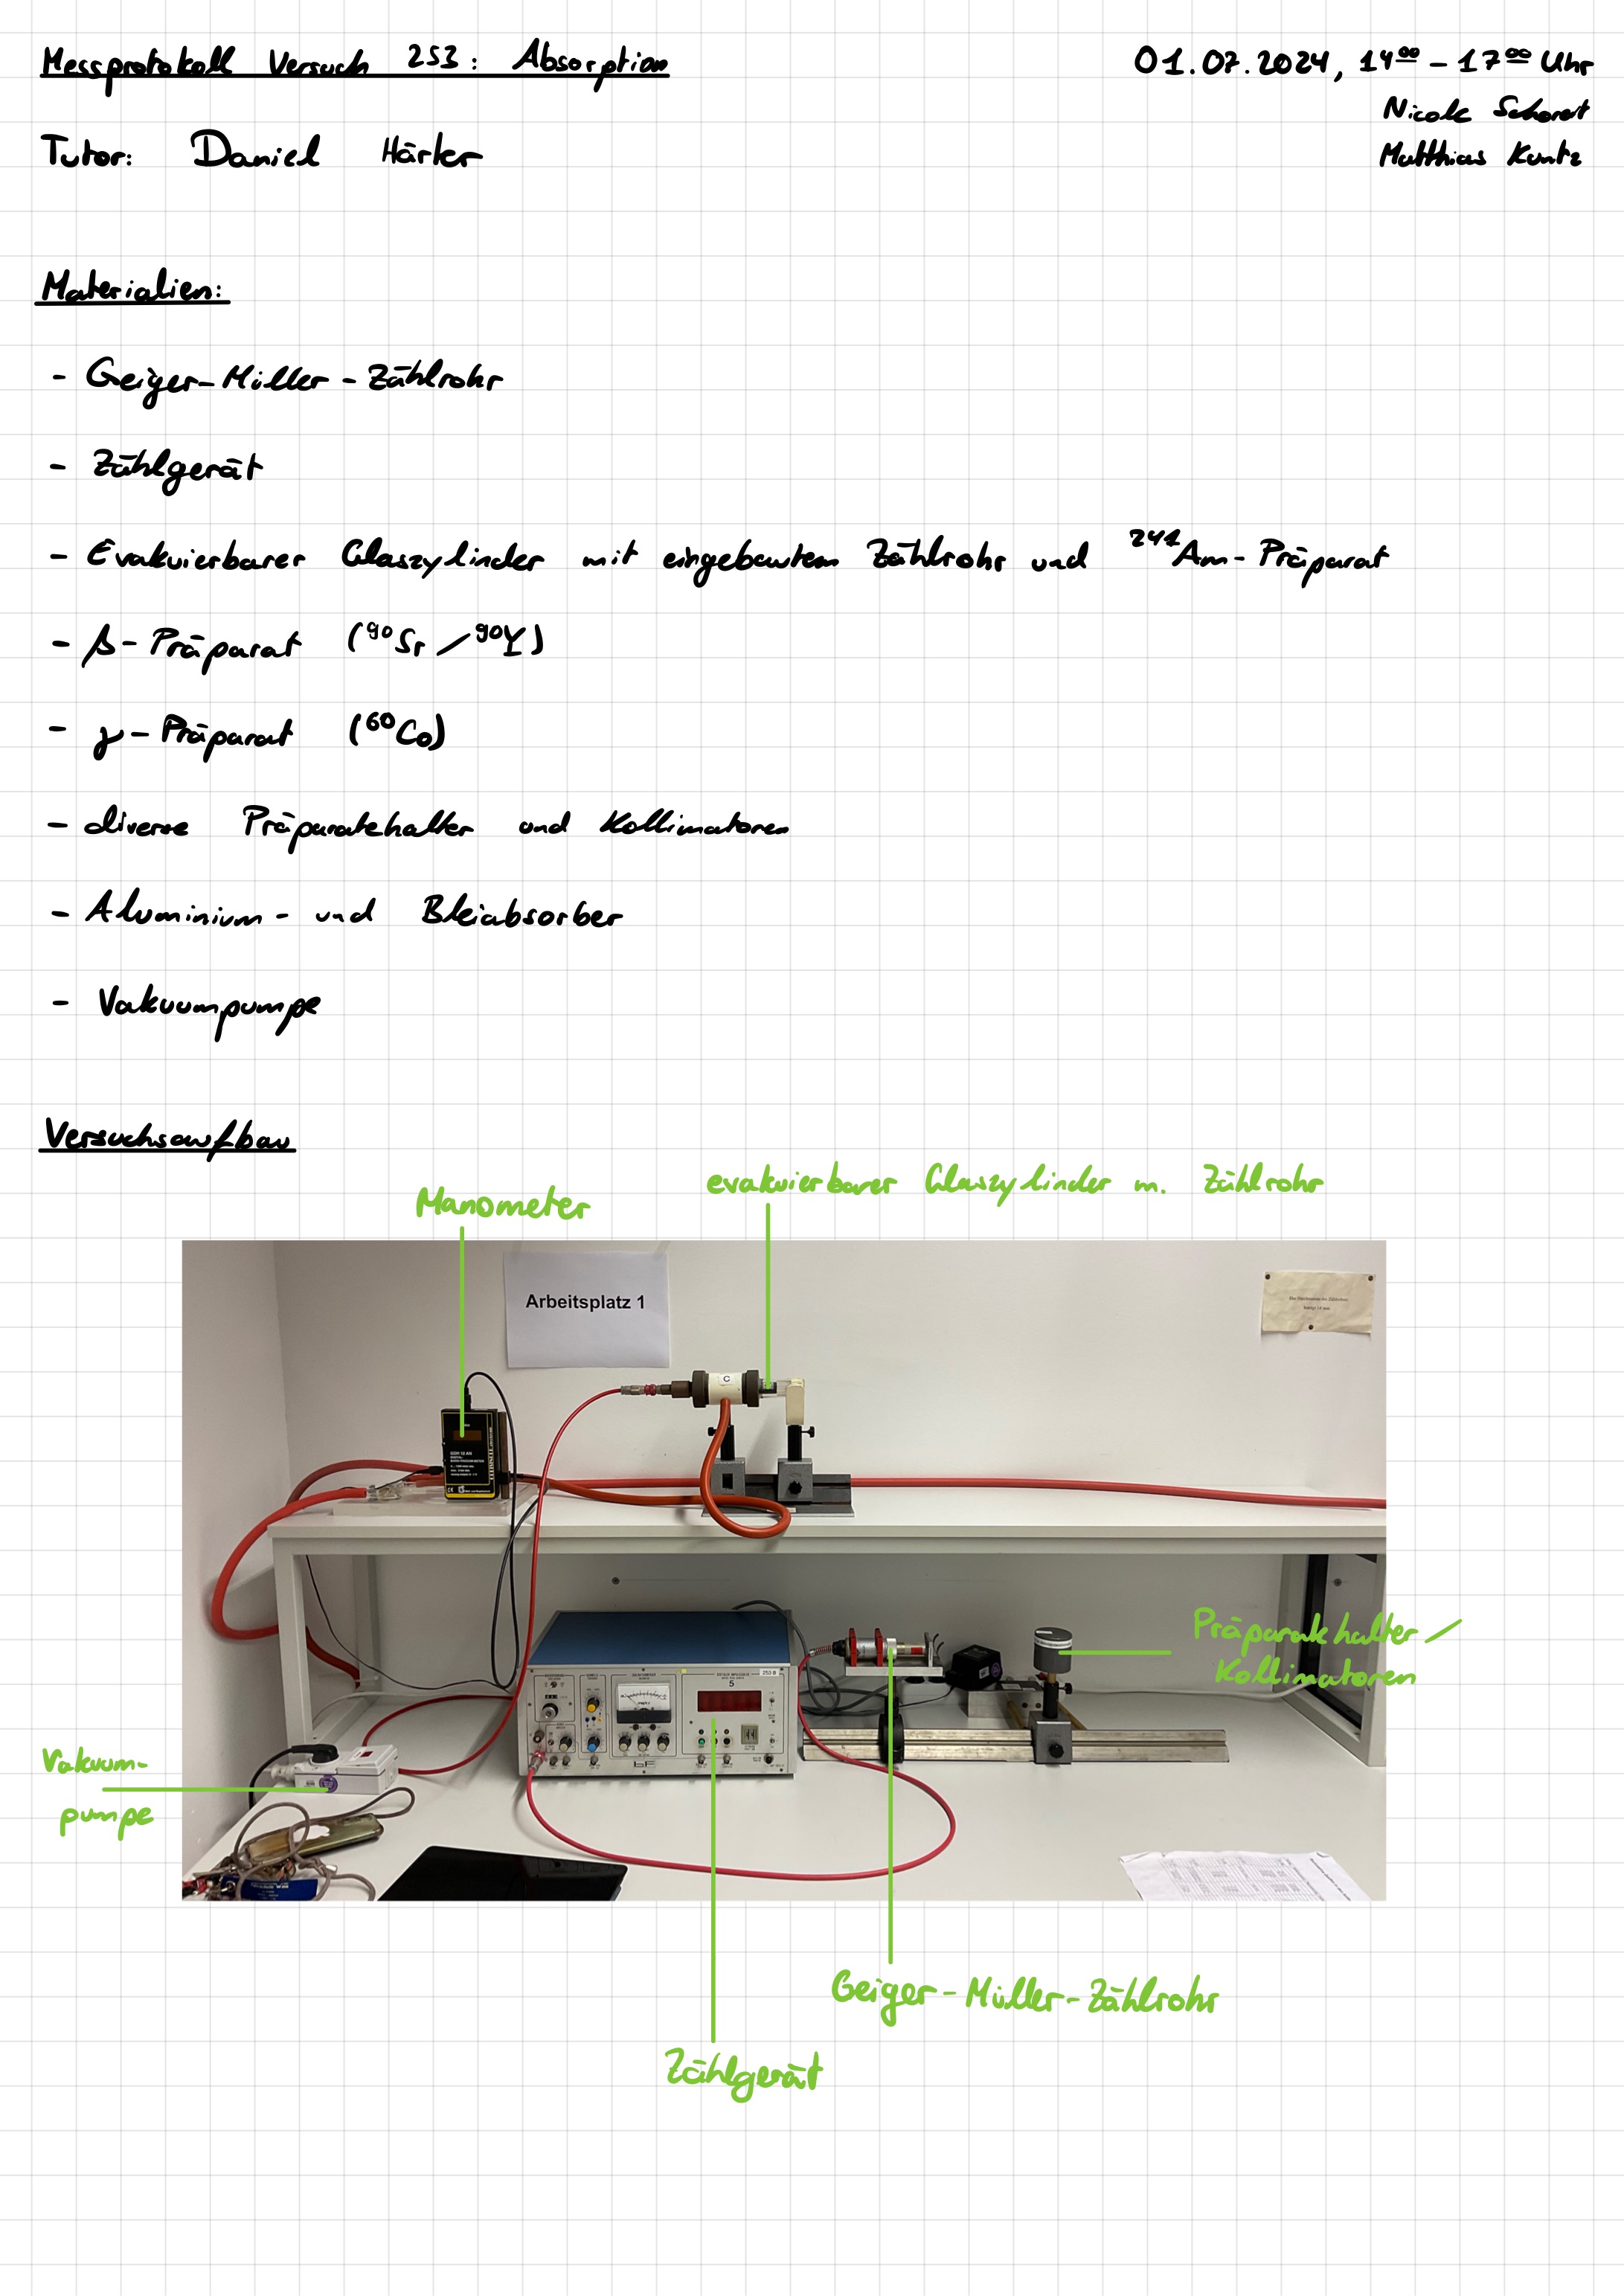 Messprotokoll Versuch 253: Absorption
01.07.2024, 14⁰⁰ – 17⁰⁰ Uhr
Nicole Schorert
Matthias Kuntz
Tutor: Daniel Härter
Materialien:
- Geiger-Müller-Zählrohr
- Zählgerät
- Evakuierbarer Glaszylinder mit eingebautem Zählrohr und ²⁴¹Am-Präparat
- β-Präparat (⁹⁰Sr / ⁹⁰Y)
- γ-Präparat (⁶⁰Co)
- diverse Präparatehalter und Kollimatoren
- Aluminium- und Bleiabsorber
- Vakuumpumpe
Versuchsaufbau
evakuierbarer Glaszylinder m. Zählrohr
Manometer
Arbeitsplatz 1
C
Präparatehalter /
Kollimatoren
5
253 B
Vakuum-
pumpe
Geiger-Müller-Zählrohr
Zählgerät